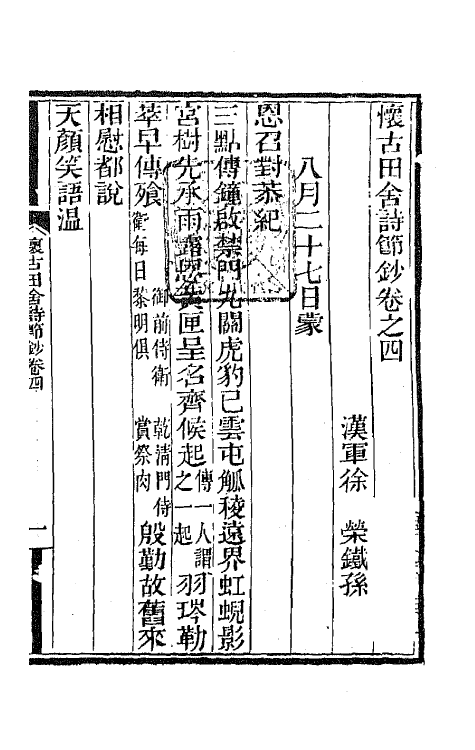 懷古田舍詩節鈔卷之四
漢軍徐 榮鐵孫
八月二十七日蒙
恩召對恭紀
三點傳鐘啟禁門九關虎豹已雲屯觚稜遠界虹蜺影
宮樹先承雨露恩 匣呈名齊候起傳一人謂之一起 羽 琌勒
萃早傳飱御前侍衛乾清門侍衛每日黎明俱賞祭肉殷勤故舊來
相慰都說
天顏笑語温
懷古田舍詩節鈔卷四
一